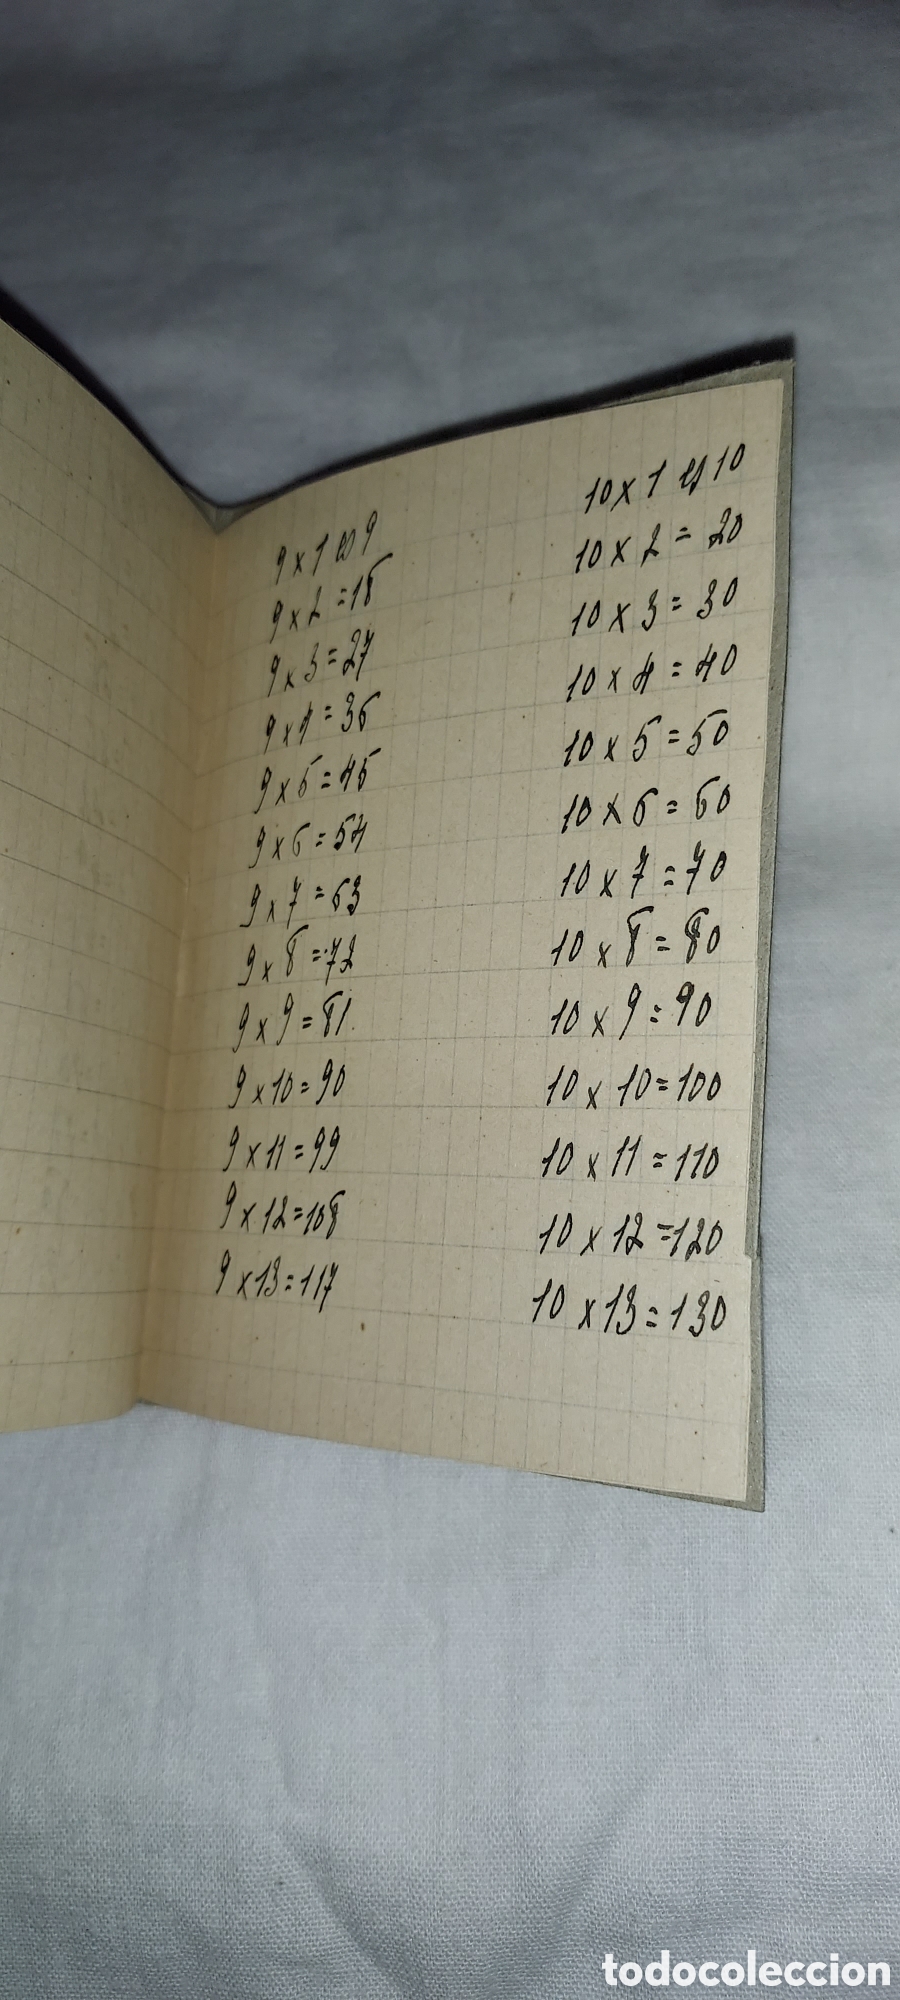 9 x 1 es 9
9 x 2 = 18
9 x 3 = 27
9 x 4 = 36
9 x 5 = 45
9 x 6 = 54
9 x 7 = 63
9 x 8 = 72
9 x 9 = 81
9 x 10 = 90
9 x 11 = 99
9 x 12 = 108
9 x 13 = 117
10 x 1 es 10
10 x 2 = 20
10 x 3 = 30
10 x 4 = 40
10 x 5 = 50
10 x 6 = 60
10 x 7 = 70
10 x 8 = 80
10 x 9 = 90
10 x 10 = 100
10 x 11 = 110
10 x 12 = 120
10 x 13 = 130
todocoleccion